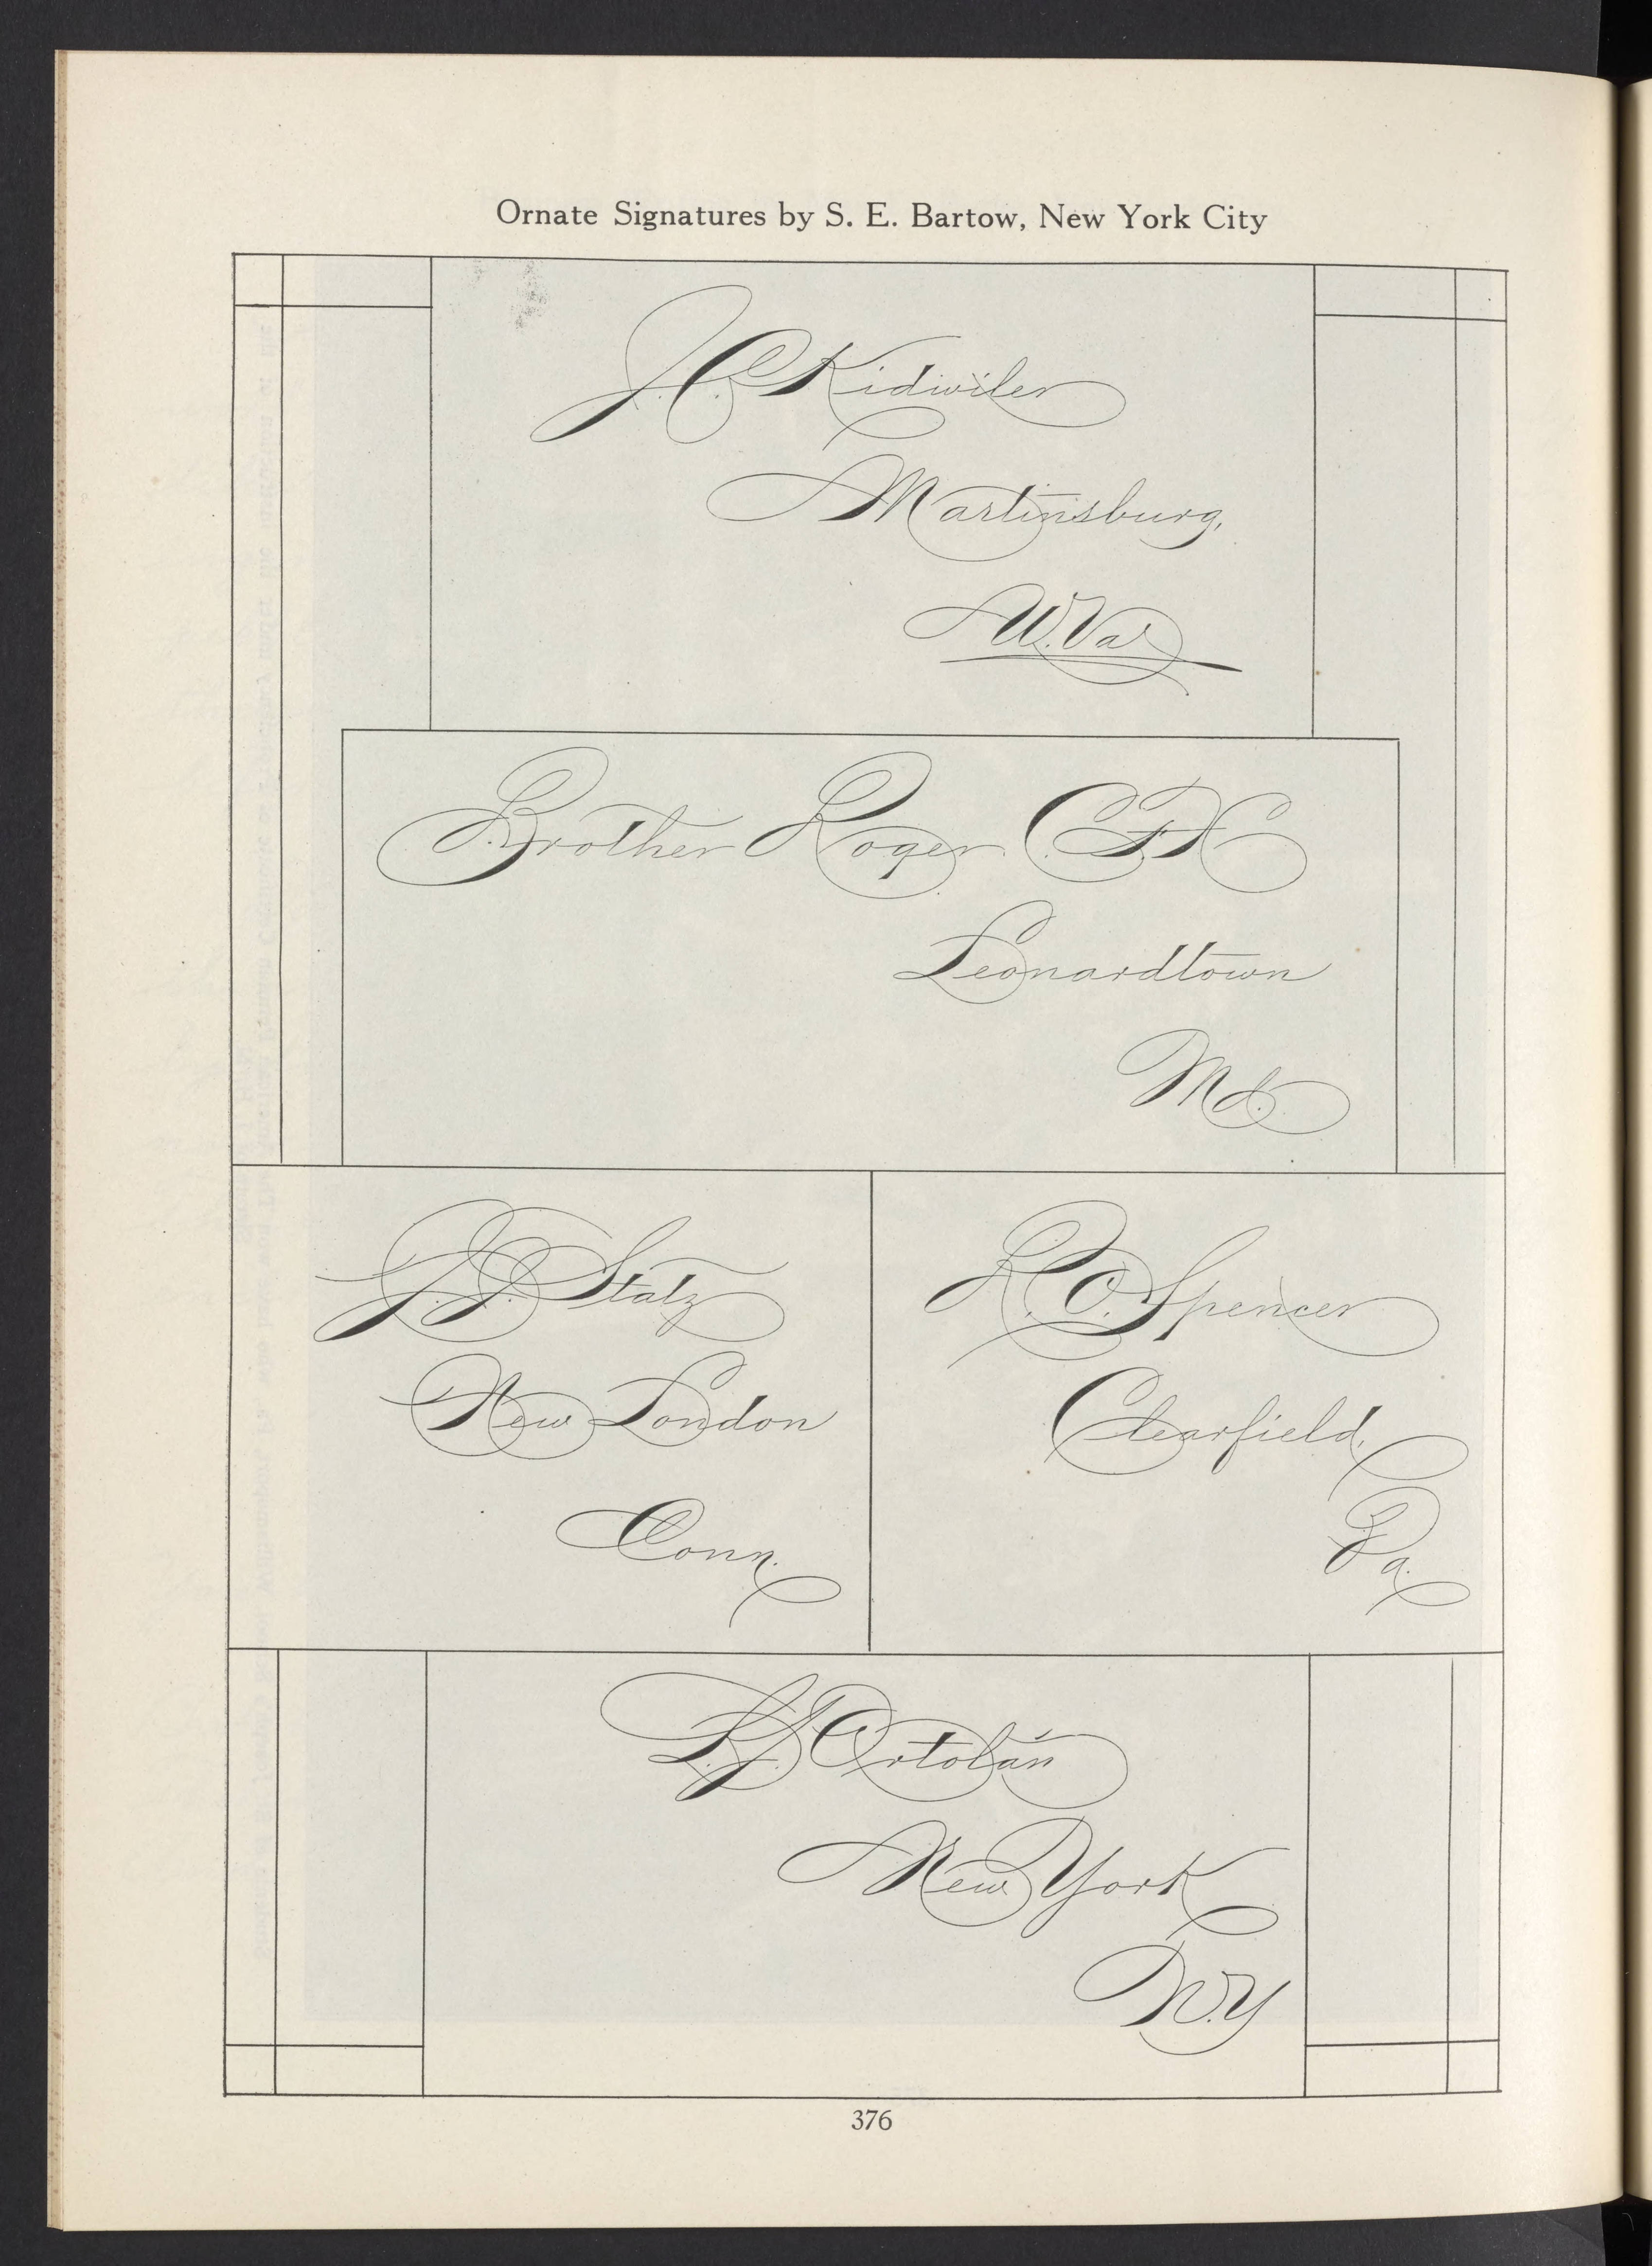 Ornate Signatures by S. E. Bartow, New York City
J. C. Kidwiler
Martinsburg,
W. Va.
Brother Roger C.F.X.
Leonardtown
Md.
J. J. Statz
New London
Conn.
R. O. Spencer
Clearfield,
Pa.
L. J. Ortolán
New York
N.Y.
376